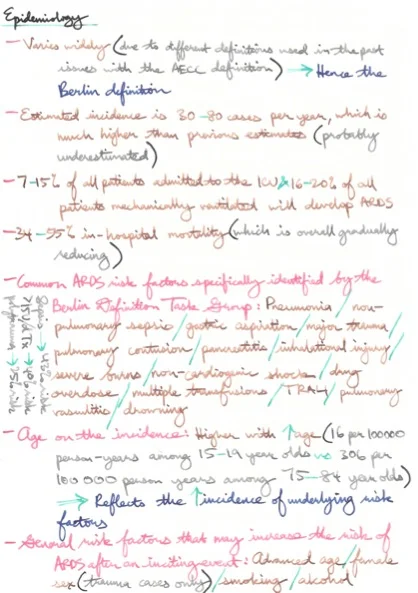 Epidemiology
- Varies widely (due to different definitions used in the past
issues with the AECC definition) → Hence the
Berlin definition
- Estimated incidence is 30-80 cases per year, which is
much higher than previous estimates (probably
underestimated)
- 7-15% of all patients admitted to the ICU & 16-20% of all
patients mechanically ventilated will develop ARDS
- 34-55% in-hospital mortality (which is overall gradually
reducing)
- Common ARDS risk factors specifically identified by the
Berlin Definition Task Group: Pneumonia / non-
pulmonary sepsis / gastric aspiration / major trauma /
pulmonary contusion / pancreatitis / inhalational injury /
severe burns / non-cardiogenic shock / drug
overdose / multiple transfusions / TRALI / pulmonary
vasculitis / drowning
Sepsis → 43% risk
>15U/d Tx → 40% risk
→ 35% risk
- Age on the incidence: Higher with ↑age (16 per 100000
person-years among 15-19 year olds vs 306 per
100 000 person years among 75-84 year olds)
⇒ Reflects the ↑incidence of underlying risk
factors
- General risk factors that may increase the risk of
ARDS after an inciting event: Advanced age / female
sex (trauma cases only) / smoking / alcohol